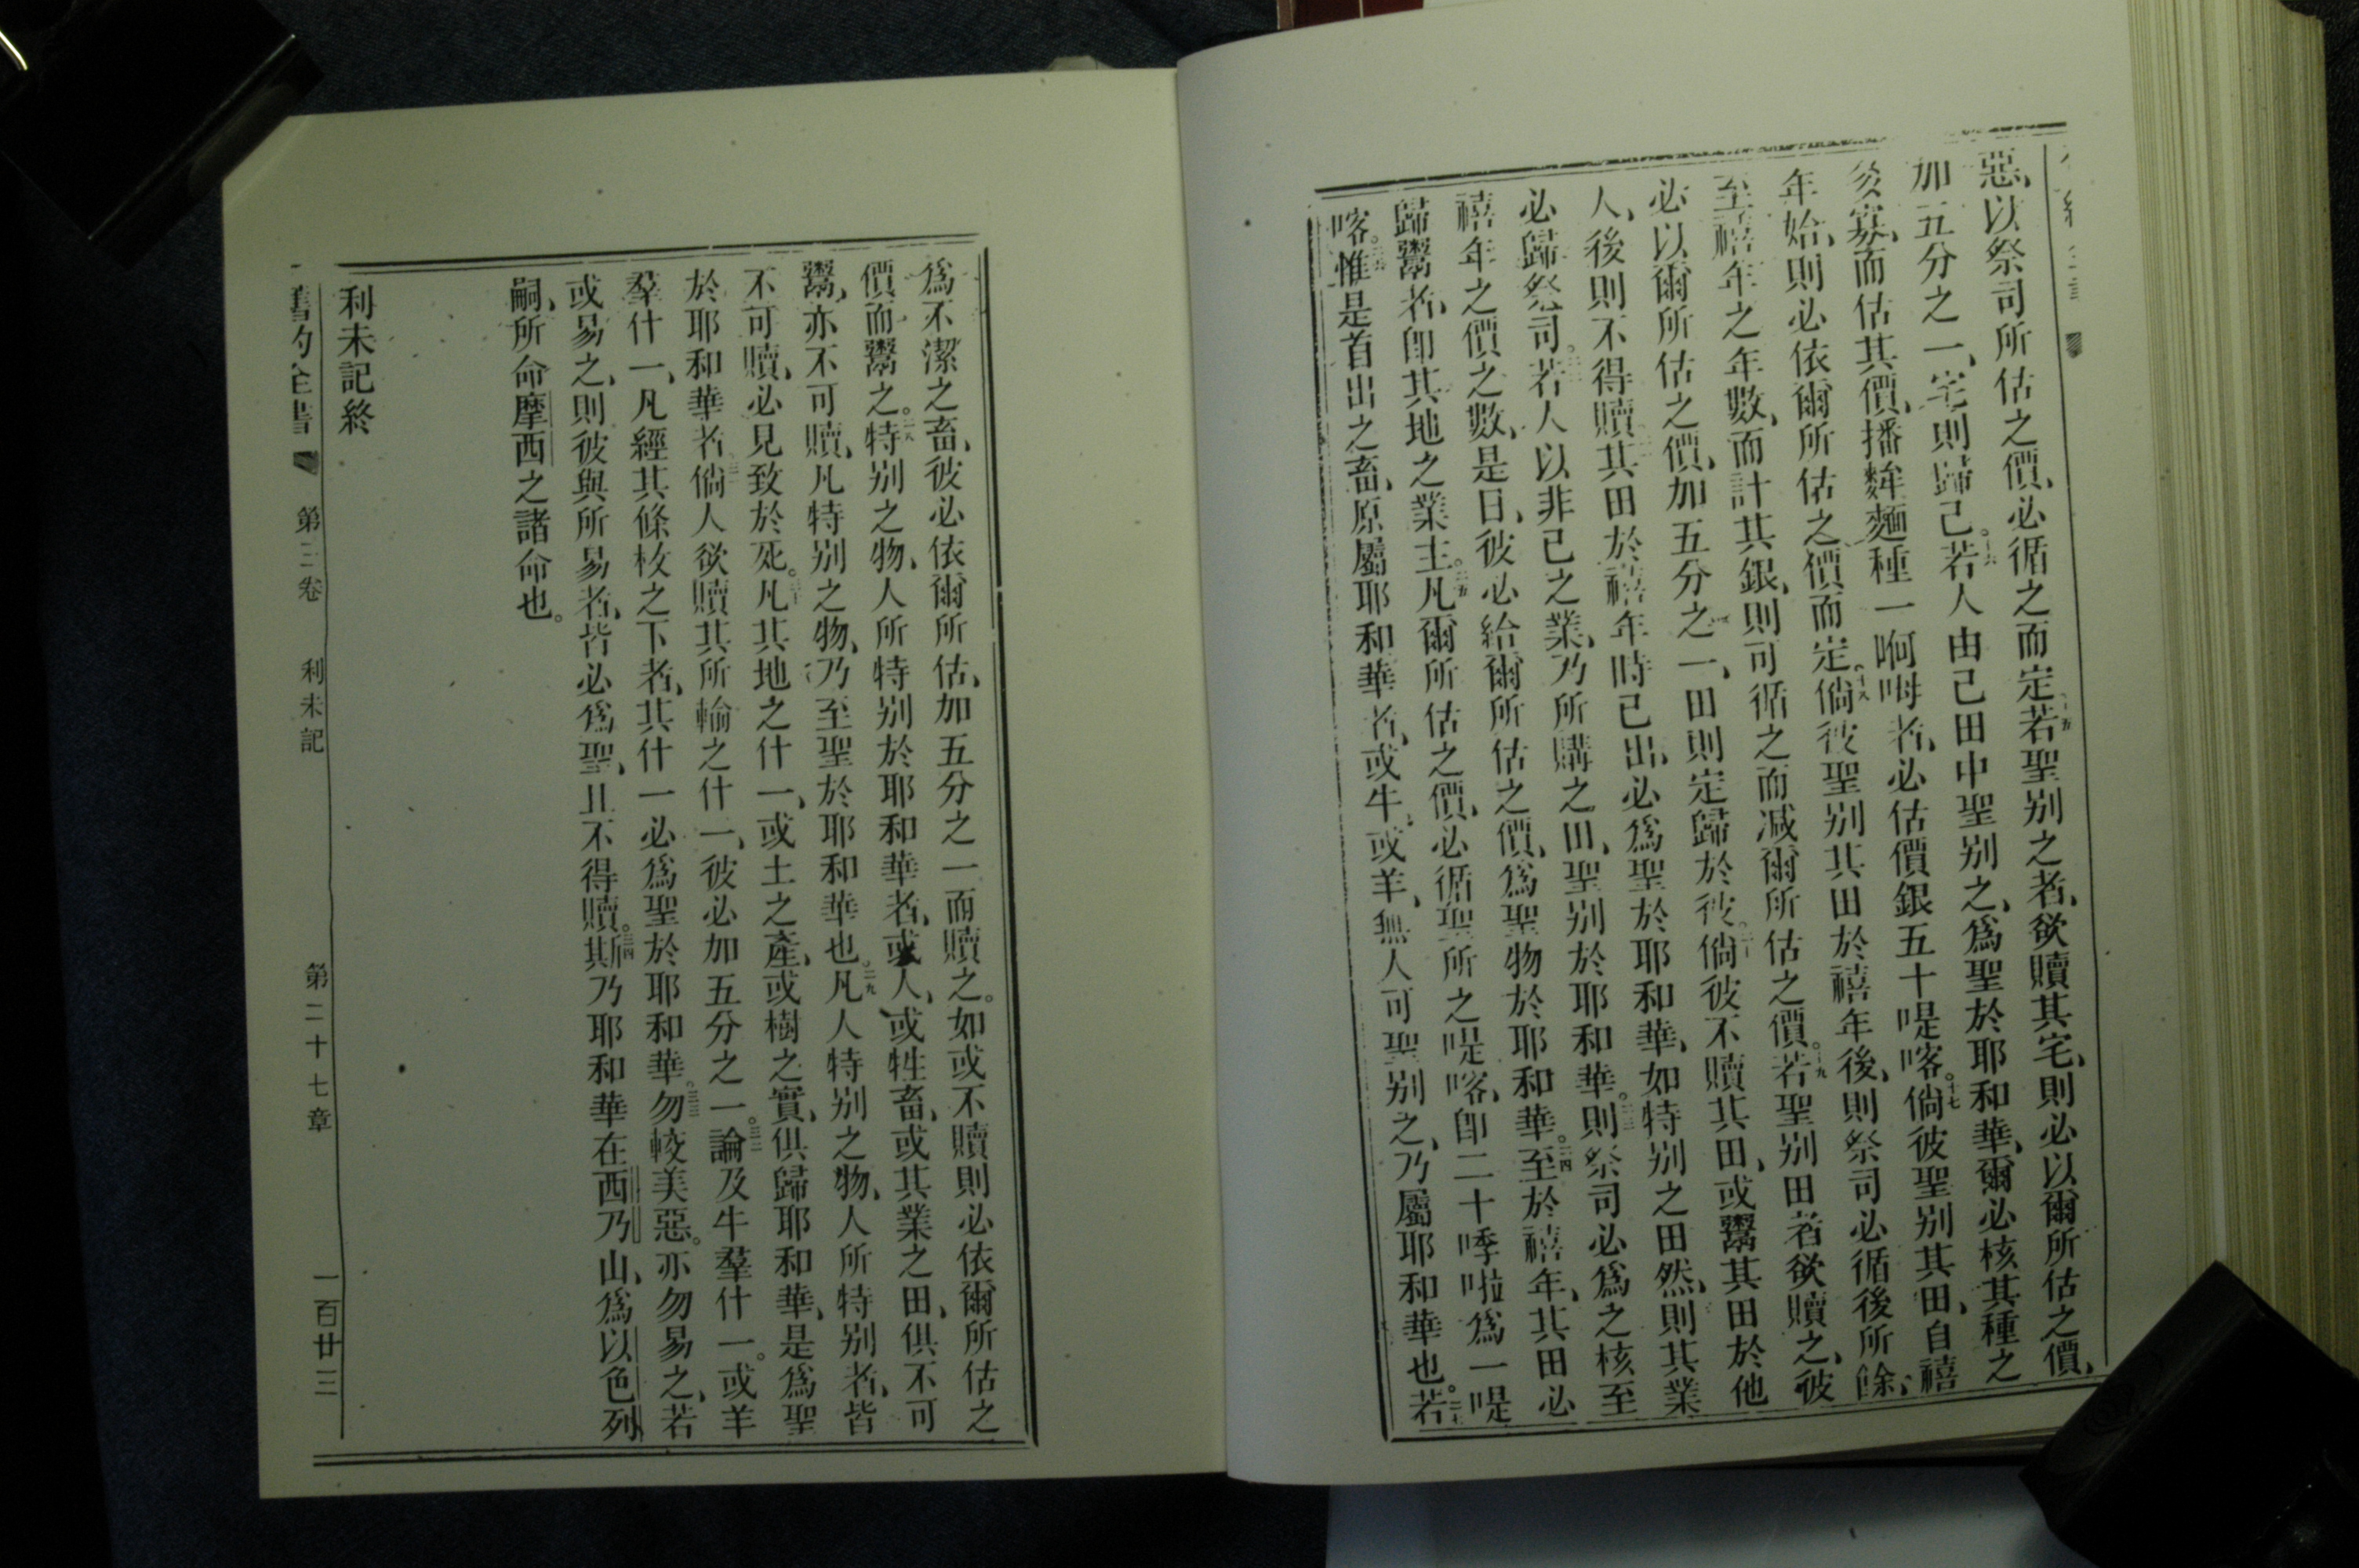 惡、以祭司所估之價、必循之而定。十五若聖別之者、欲贖其宅、則必以爾所估之價、
加五分之一、宅則歸己。十六若人由己田中聖別之、爲聖於耶和華、爾必核其種之
多寡、而估其價、播麰麵種一啊咰者、必估價銀五十㖷喀。十七倘彼聖別其田、自禧
年始、則必依爾所估之價而定。十八倘彼聖別其田於禧年後、則祭司必循後所餘、
至禧年之年數、而計其銀、則可循之而減爾所估之價。十九若聖別田者欲贖之、彼
必以爾所估之價、加五分之一、田則定歸於彼。二十倘彼不贖其田、或鬻其田於他
人、後則不得贖。其田於禧年時已出、必爲聖於耶和華、如特別之田然、則其業
必歸祭司。若人以非己之業、乃所購之田、聖別於耶和華。則祭司必爲之核至
禧年之價之數、是日、彼必給爾所估之價、爲聖物於耶和華。二四至於禧年、其田必
歸鬻者、卽其地之業主。二五凡爾所估之價、必循聖所之㖷喀、卽二十㖢啦爲一㖷
喀。惟是首出之畜、原屬耶和華者、或牛、或羊、無人可聖別之、乃屬耶和華也。若
爲不潔之畜、彼必依爾所估、加五分之一而贖之。如或不贖則必依爾所估之
價而鬻之。二八特別之物、人所特別於耶和華者、或人、或牲畜、或其業之田、俱不可
鬻、亦不可贖、凡特別之物、乃至聖於耶和華也。二九凡人特別之物、人所特別者、皆
不可贖、必見致於死。三十凡其地之什一、或土之產、或樹之實、俱歸耶和華、是爲聖
於耶和華者。三一倘人欲贖其所輸之什一、彼必加五分之一。三二論及牛羣什一。或羊
羣什一、凡經其條枚之下者、其什一必爲聖於耶和華。三三勿較美惡。亦勿易之、若
或易之、則彼與所易者、皆必爲聖、且不得贖。三四斯乃耶和華在西乃山、爲以色列
嗣、所命摩西之諸命也。
利未記終
舊約全書 第三卷 利未記 第二十七章 一百廿三